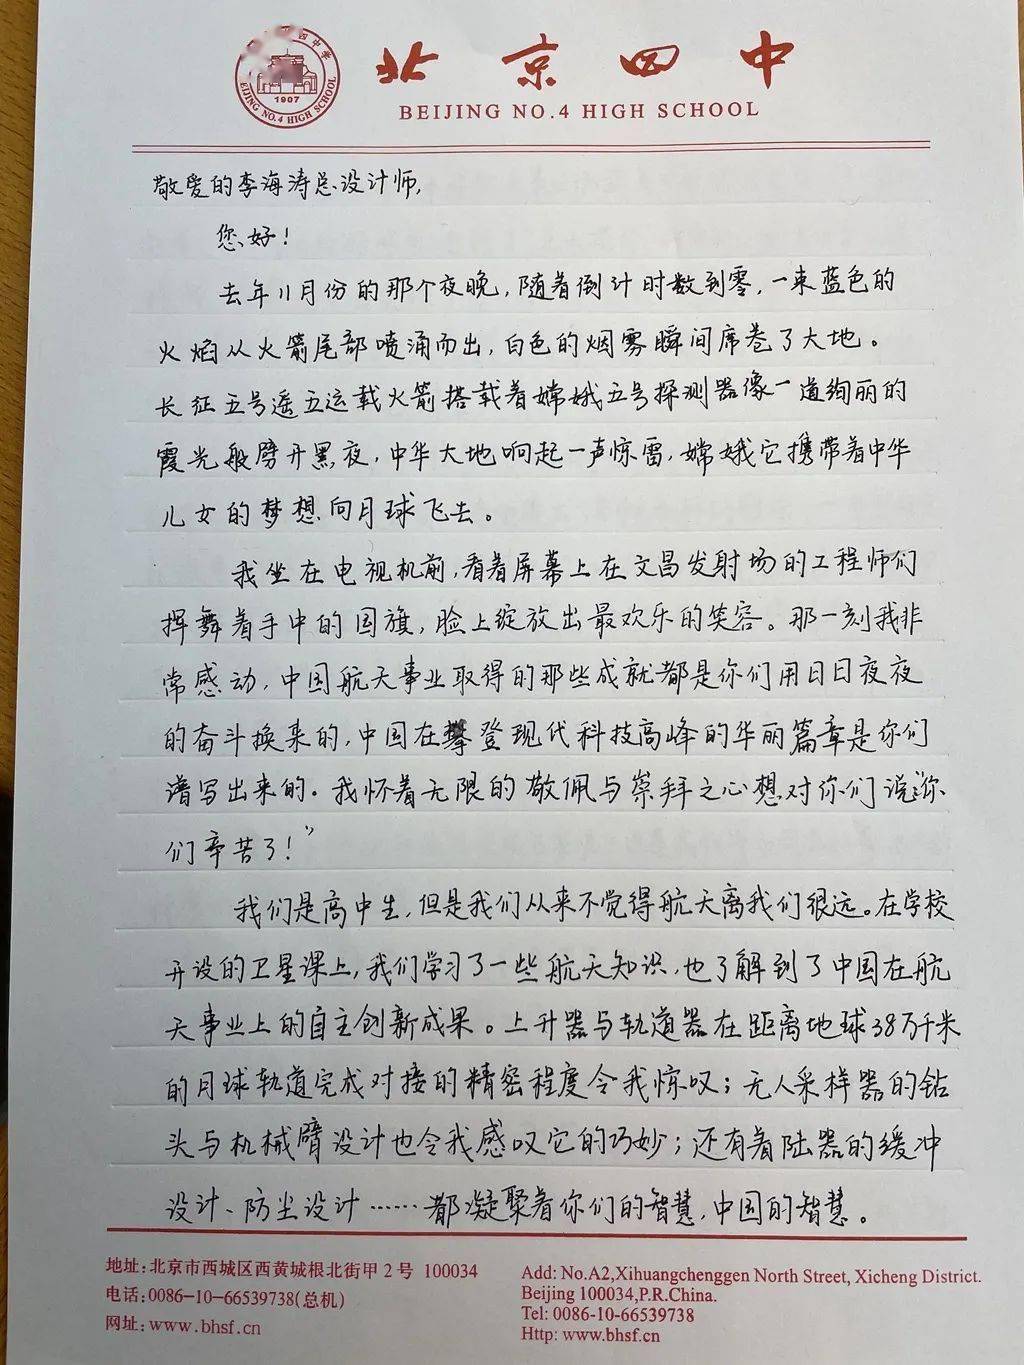 北京四中
BEIJING NO.4 HIGH SCHOOL
1907
BEIJING NO.4 HIGH SCHOOL
敬爱的李海涛总设计师，
您好！
去年11月份的那个夜晚，随着倒计时数到零，一束蓝色的
火焰从火箭尾部喷涌而出，白色的烟雾瞬间席卷了大地。
长征五号遥五运载火箭搭载着嫦娥五号探测器像一道绚丽的
霞光般劈开黑夜，中华大地响起一声惊雷，嫦娥它携带着中华
儿女的梦想向月球飞去。
我坐在电视机前，看着屏幕上在文昌发射场的工程师们
挥舞着手中的国旗，脸上绽放出最欢乐的笑容。那一刻我非
常感动，中国航天事业取得的那些成就都是你们用日日夜夜
的奋斗换来的，中国在攀登现代科技高峰的华丽篇章是你们
谱写出来的。我怀着无限的敬佩与崇拜之心想对你们说：“你
们辛苦了！”
我们是高中生，但是我们从来不觉得航天离我们很远。在学校
开设的卫星课上，我们学习了一些航天知识，也了解到了中国在航
天事业上的自主创新成果。上升器与轨道器在距离地球38万千米
的月球轨道完成对接的精密程度令我惊叹；无人采样器的钻
头与机械臂设计也令我感叹它的巧妙；还有着陆器的缓冲
设计、防尘设计……都凝聚着你们的智慧，中国的智慧。
地址：北京市西城区西黄城根北街甲2号 100034
电话：0086-10-66539738(总机)
网址：www.bhsf.cn
Add: No.A2,Xihuangchenggen North Street, Xicheng District.
Beijing 100034,P.R.China.
Tel: 0086-10-66539738
Http: www.bhsf.cn